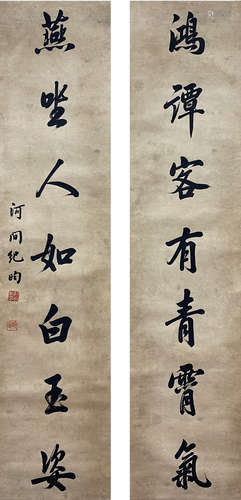 鴻譚客有青霄氣
燕坐人如白玉姿
河間紀昀